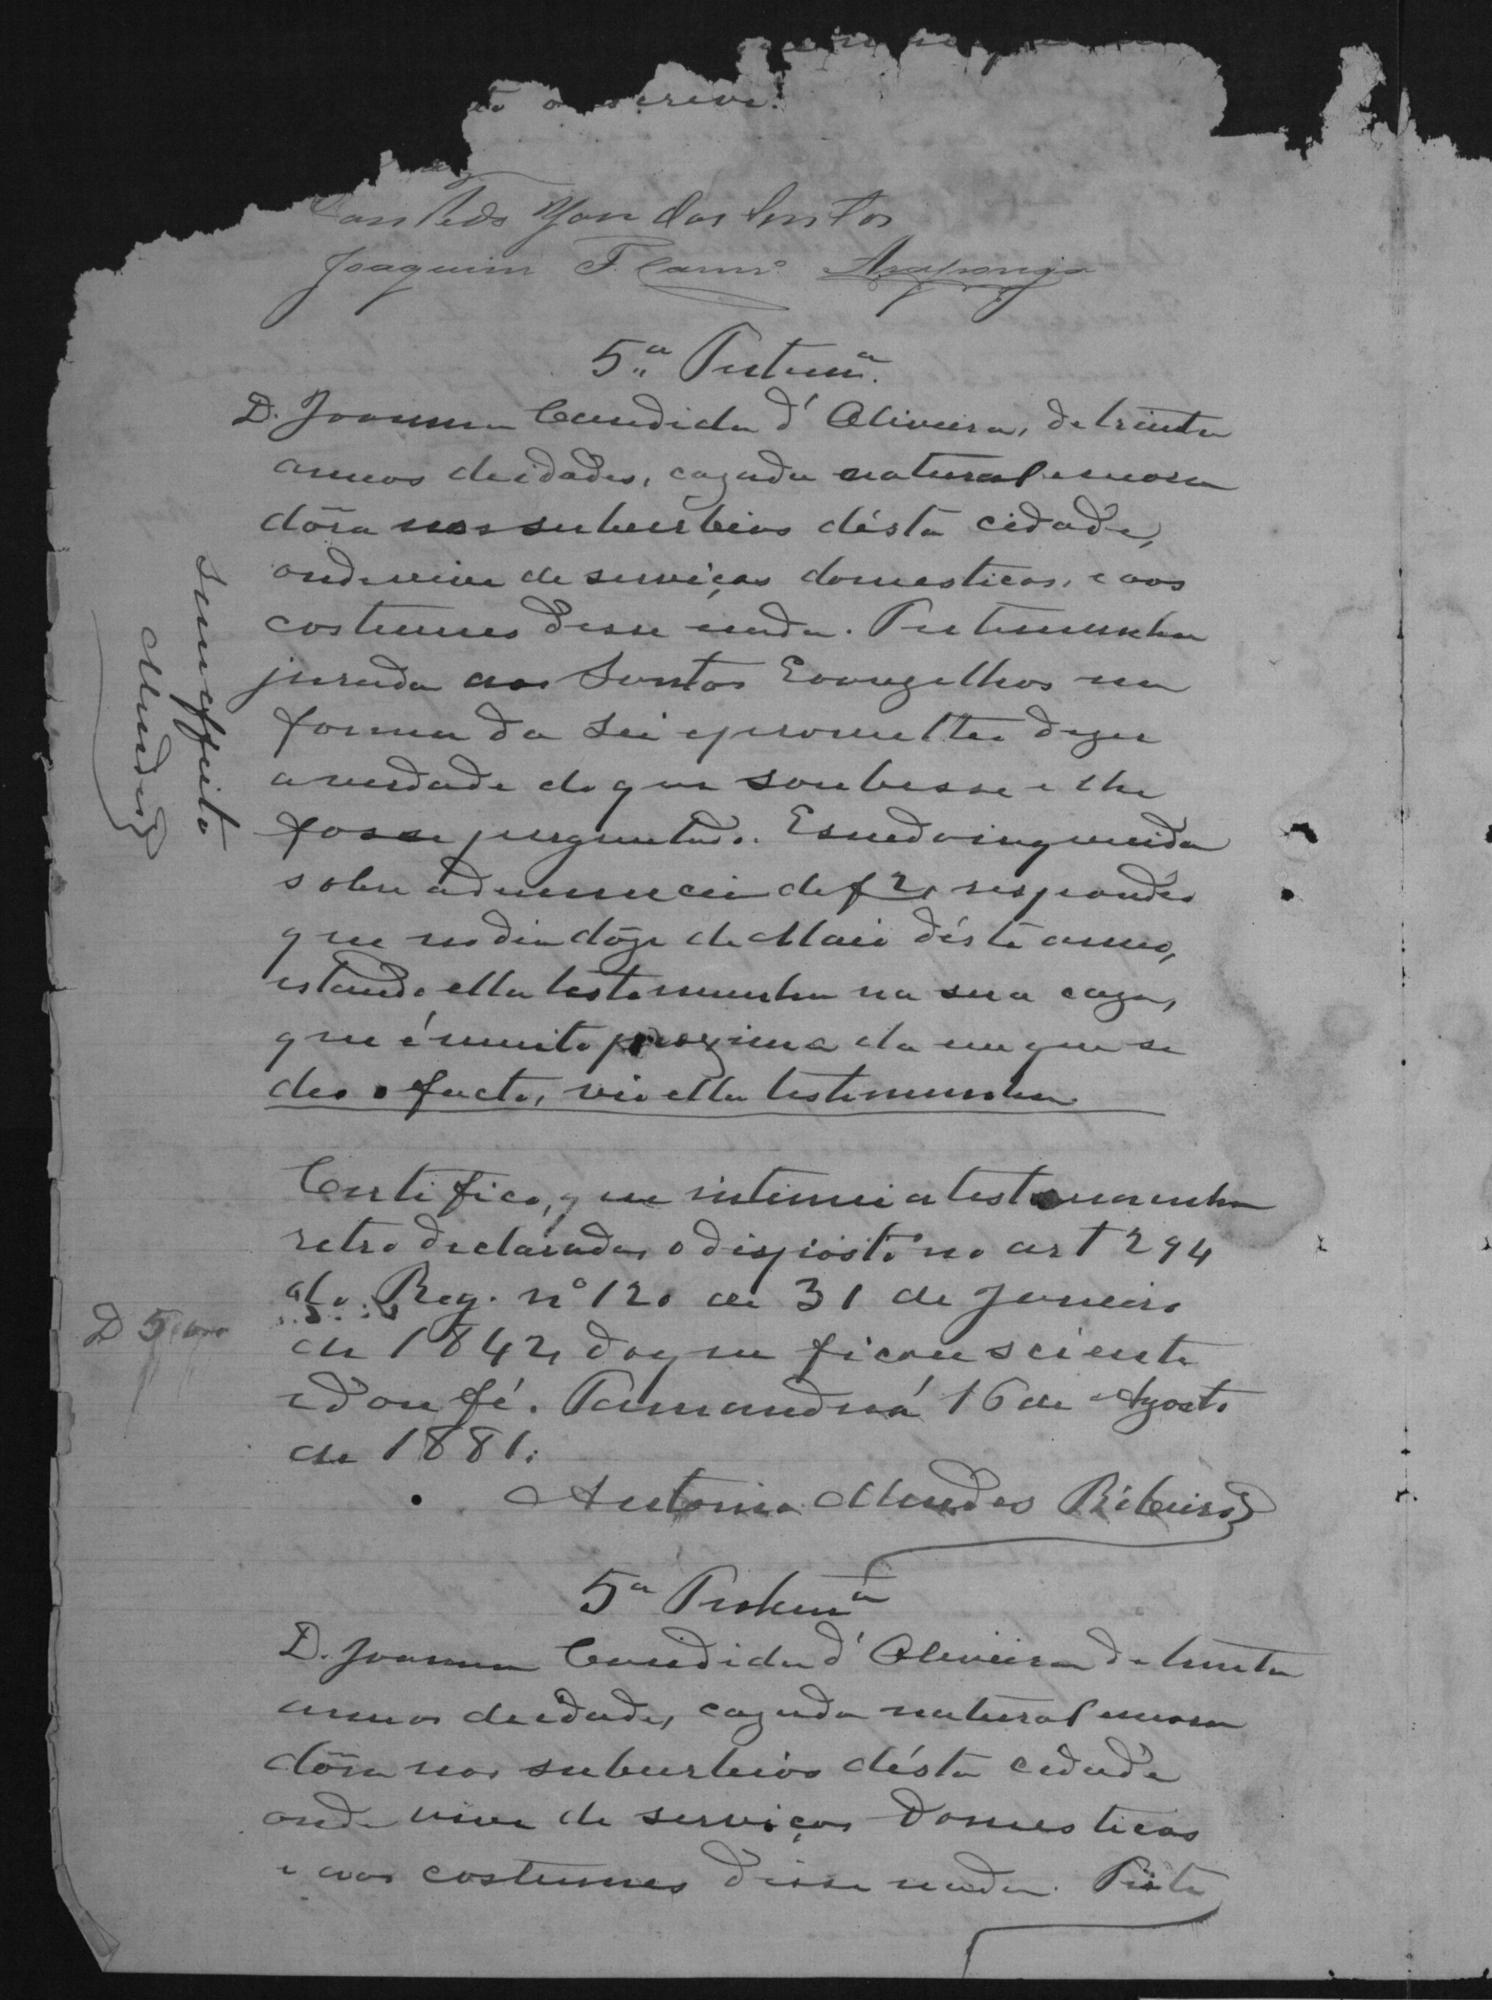 o escrevi.
dos Santos
Joaquim F. Carnr.o Araponga
5.a Testem.a
D. Joanna Candida d'Oliveira, de trinta
annos de idade, cazada natural e mora
dôra nos suburbios désta cidade,
onde vive de serviços domesticos, e aos
costumes disse nada. Testemunha
jurada aos Santos Evangelhos na
forma da Lei e prometteo dizer
a verdade do que soubesse e lhe
fosse perguntado. E sendo inquerida
sobre a denuncia de f 2, respondeo
que no dia dôze de Maio déste anno,
estando ella testemunha na sua caza,
que é muito proxima da em que se
deo o facto, vio ella testemunha
Sem effeito
Mendes
Certifico, que intimei a testemunha
retro declarada, o disposto no art 294
do Reg. nº 120 de 31 de Janeiro
de 1842, do que ficou sciente
e dou fé. Tamanduá 16 de Agosto
de 1881.
Antonio Mendes Ribeiro
D 5
5a Testem.a
D. Joanna Candida d'Oliveira de trinta
annos de idade, cazada natural e mora
dôra nos suburbios désta cidade
onde vive de serviços domesticos
e aos costumes disse nada. Teste